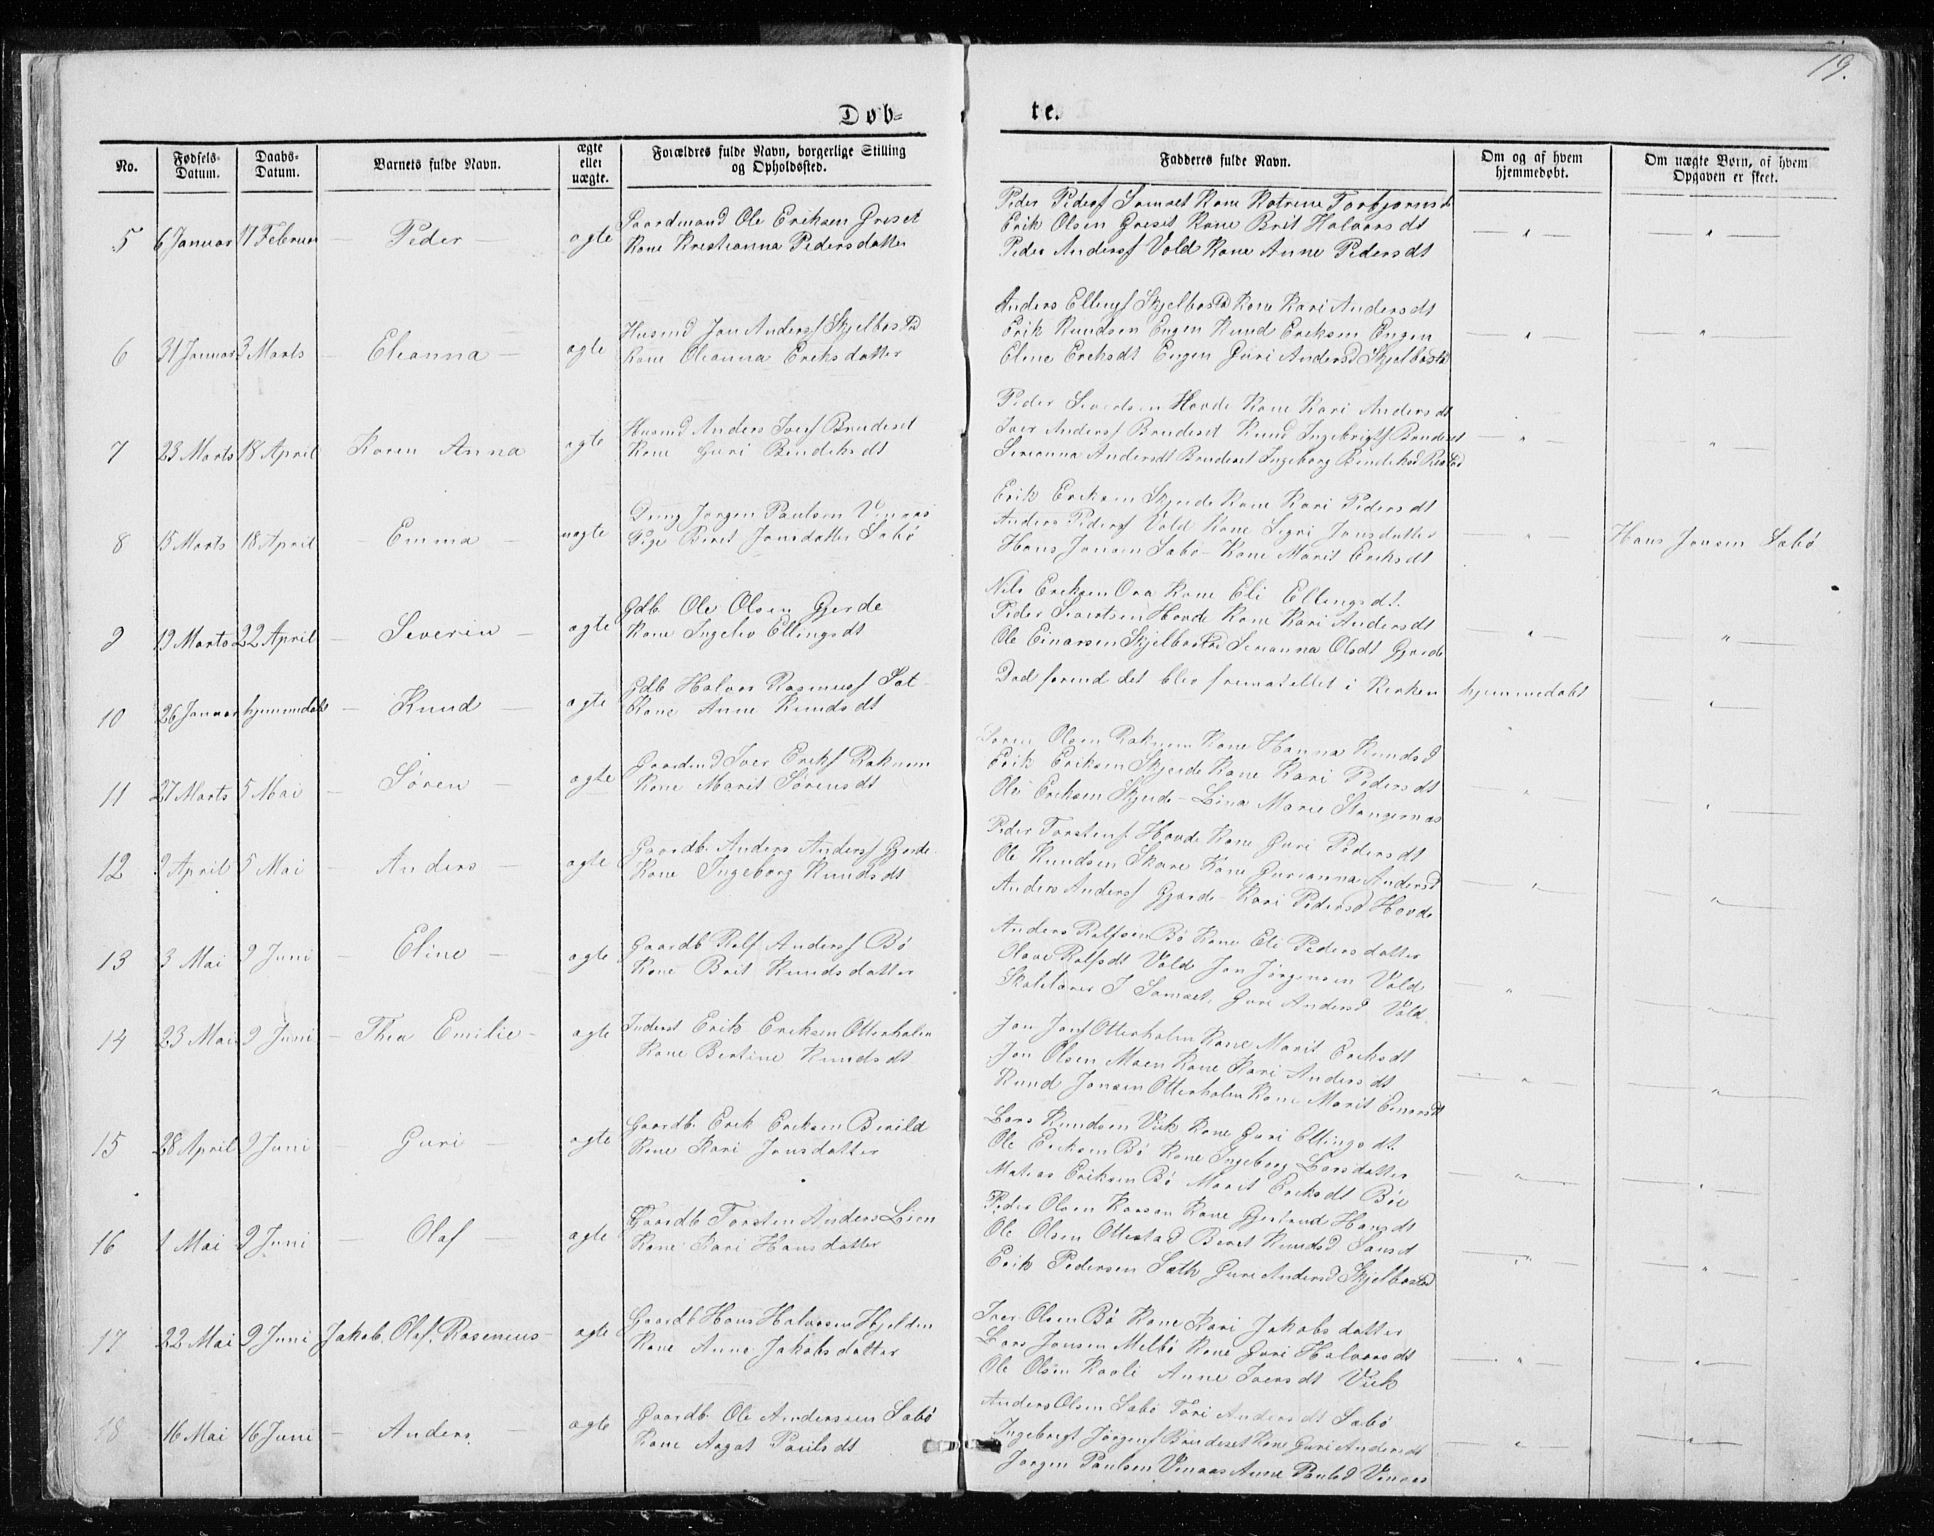 19.
Døb-
te.
No.
Fødsels-Datum.
Daabs-Datum.
Barnets fulde Navn.
ægte eller uægte.
Forældres fulde Navn, borgerlige Stilling og Opholdssted.
Fadderes fulde Navn.
Om og af hvem hjemmedøbt.
Om uægte Børn, af hvem Opgaven er skeet.
5 6 Januar 17 Februar - Peder - ægte
Gaardmand Ole Eriksen Griset
Kone Kristianna Pedersdatter
Peder Peders Kone Katrine Torbjørnsd
Erik Olsen Griset Kone Brit Halvorsdt
Peder Anders Vold Kone Anne Pedersdt
6 31 Januar 3 Marts - Eleanna - ægte
Husmd Jon Anders Skjelbostad
Kone Oleanna Eriksdatter
Anders Ellings Skjelbostad Kone Kari Andersdt
Erik Knudsen Engen Knud Eriksen Engen
Eline Eriksdt Engen Guri Andersd Skjelbostad
7 23 Marts 18 April - Karen Anna ægte
Husmd Anders Ivers Bruaset
Kone Guri Bendiksdt
Peder Sivertsen Hovde Kone Kari Andersdt
Iver Anders Bruaset Knud Ingebrigts Bruaset
Serianna Andersdt Bruaset Ingeborg Bendiksd
8 15 Marts 18 April - Emma - uægte
Dreng Jørgen Paulsen Vinaas
Pige Beret Jonsdatter Sabø
Erik Eriksen Skjerde Kone Kari Pedersdt
Anders Peders Vold Kone Sigri Jonsdatter
Hans Jonsen Sabø - Kone Marit Eriksdt
Hans Jonsen Sabø
9 19 Marts 22 April - Severin - ægte
Gdb. Ole Olsen Gjerde
Kone Ingeborg Ellingsdt
Nils Eriksen Ora Kone Eli Ellingsdt.
Peder Sivertsen Hovde Kone Kari Andersdt
Ole Einarsen Skjelbostad Serianna Olsdt Gjerde
10 26 Januar hjemmedøbt - Knud - ægte
Gdb Halvor Rasmus Sat
Kone Anne Knudsdt
Død forend det blev fremstillet i Kirken hjemmedøbt
11 27 Marts 5 Mai - Søren - ægte
Gaardmd Iver Eriks Raknem
Kone Marit Sørensdt
Søren Olsen Raknem Kone Hanna Knudsd
Erik Eriksen Skjerde Kone Kari Pedersdt
Ole Eriksen Skjerde - Lina Marie
12 9 April 5 Mai - Anders - ægte
Gaardb. Anders Anders Gjerde
Kone Ingeborg Knudsdt
Peder Torstens Hovde Kone Guri Pedersdt
Ole Knudsen Skare Kone Gurianna Andersd
Anders Anders Gjerde - Kari Pedersd Hovde
13 3 Mai 9 Juni - Eline - ægte
Gaardb Rolf Anders Bø
Kone Brit Knudsdatter
Anders Rolfsen Bø Kone Eli Pedersdatter
Olave Rolfsdt Vold Jon Jørgensen Vold
Skolelærer J Guri Andersd Vold
14 23 Mai 9 Juni - Thea Emilie - ægte
Inderst Erik Eriksen Otterholm
Kone Bertine Knudsdt
Jon Jons Otterholm Kone Marit Eriksdt
Jon Olsen Moen Kone Kari Andersdt
Knud Jonsen Otterholm Kone Marit Einarsdt
15 28 April 9 Juni - Guri - ægte
Gaardb. Erik Eriksen Berild
Kone Kari Jonsdatter
Lars Knudsen Vik Kone Guri Ellingsdt.
Ole Eriksen Bø Kone Ingeborg Larsdatter
Matias Eriksen Bø Marit Eriksdt Bøe
16 1 Mai 9 Juni - Olaf - ægte
Gaardb Torsten Anders Lien
Kone Kari Hansdatter
Peder Olsen Kone Gjertrud Hansdt
Ole Olsen Ottestad Beret Knudsd
Erik Pedersen Sæth Guri Andersd Skjelbostad
17 22 Mai 9 Juni Jakob Olaf Rasmus - ægte
Gaardb Hans Halvorsen Hjelden
Kone Anne Jakobsdatter
Iver Olsen Bø Kone Kari Jakobsdatter
Lars Jonsen Melbø Kone Guri Halvorsdt
Ole Olsen Anne Iversdt Vik
18 16 Mai 16 Juni - Anders - ægte
Gaardb. Ole Anderssen Sabø
Kone Aagot Paulsdt
Anders Olsen Sabø Kari Andersdt Sabø
Ingebrigt Jørgens Bruaset Kone Guri Andersdt
Jørgen Paulsen Vinaas Anne Paulsd Vinaas